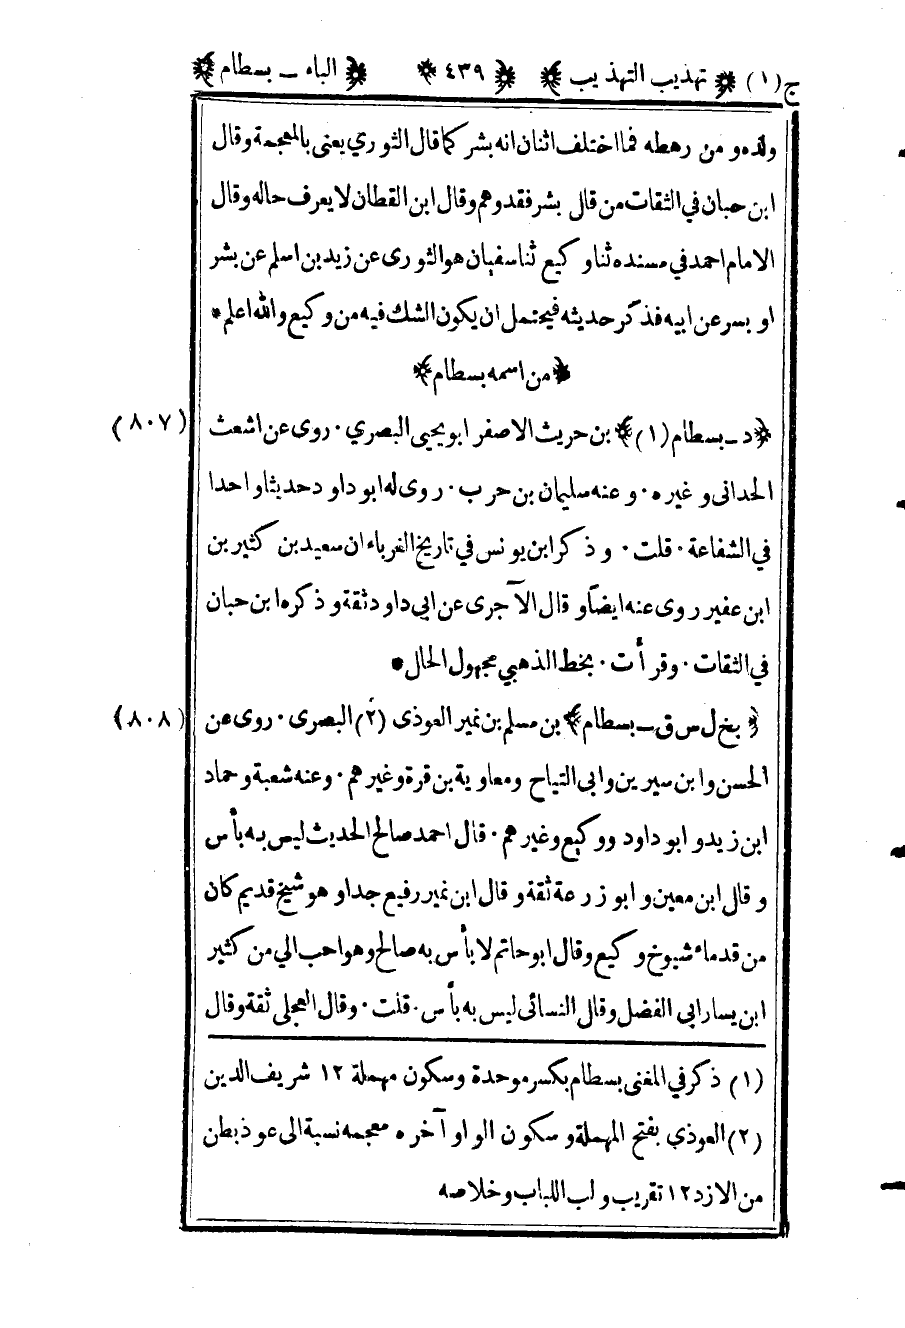 ج (١) ﴿ تهذيب التهذيب ﴾ ﴿ ٤٣٩ ﴾ ﴿ الباء ـ بسطام ﴾
ولده و من رهطه فما اختلف اثنان انه بشر كما قال الثوري يعنى بالمعجمة وقال
ابن حبان في الثقات من قال بشر فقد وهم وقال ابن القطان لا يعرف حاله وقال
الامام احمد في مسنده ثنا وكيع ثنا سفيان هو الثورى عن زيد بن اسلم عن بشر
او بسر عن ابيه فذكر حديثه فيحتمل ان يكون الشك فيه من وكيع والله اعلم *
﴿ من اسمه بسطام ﴾
﴿ د ـ بسطام (١) ﴾ بن حريث الاصفر ابو يحيى البصري ٠ روى عن اشعث (٨٠٧)
الحدانى و غيره ٠ و عنه سليمان بن حرب ٠ روى له ابو داود حديثا واحدا
في الشفاعة ٠ قلت ٠ و ذكر ابن يونس في تاريخ الغرباء ان سعيد بن كثير بن
ابن عفير روى عنه ايضاً و قال الآجرى عن ابي داود ثقة و ذكره ابن حبان
في الثقات ٠ وقرأت ٠ بخط الذهبي مجهول الحال *
﴿ بخ ل س ق ـ بسطام ﴾ بن مسلم بن نمير العوذى (٢) البصرى ٠ روى عن (٨٠٨)
الحسن وابن سيرين وابى التياح ومعاوية بن قرة وغيرهم ٠ وعنه شعبة وحماد
ابن زيد و ابو داود ووكيع وغيرهم ٠ قال احمد صالح الحديث ليس به بأس
و قال ابن معين و ابو زرعة ثقة و قال ابن نمير رفيع جدا و هو شيخ قديم كان
من قدماء شيوخ وكيع وقال ابو حاتم لا بأس به صالح وهو احب الي من كثير
ابن يسار ابي الفضل وقال النسائى ليس به بأس ٠ قلت ٠ وقال العجلى ثقة وقال
(١) ذكر في المغنى بسطام بكسر موحدة وسكون مهملة ١٢ شريف الدين
(٢) العوذي بفتح المهملة و سكون الواو آخره معجمه نسبة الى عوذ بطن
من الازد ١٢ تقريب و لب اللباب و خلاصه